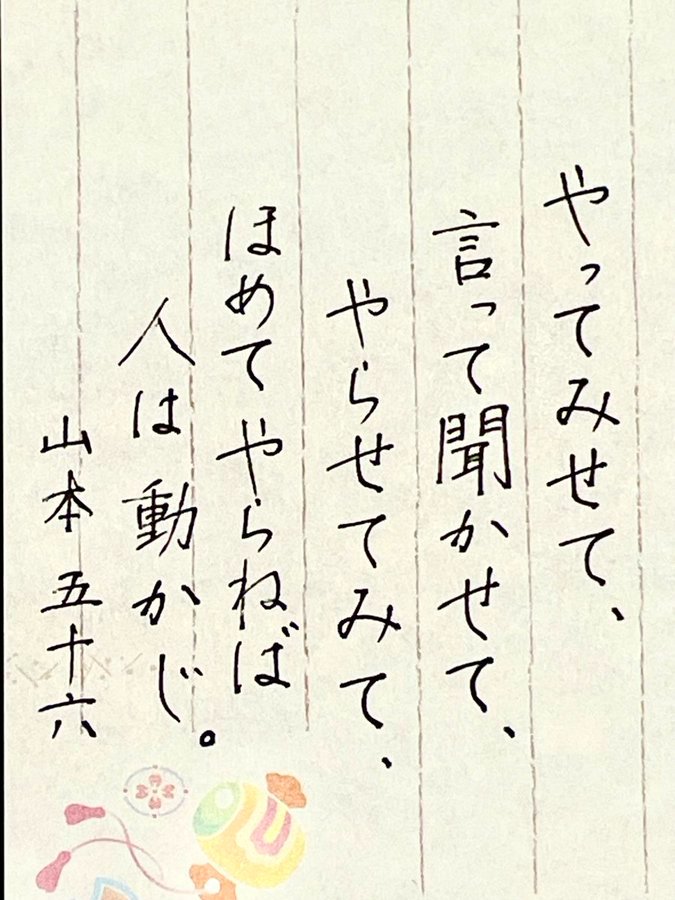 やってみせて、
言って聞かせて、
やらせてみて、
ほめてやらねば
人は動かじ。
山本五十六